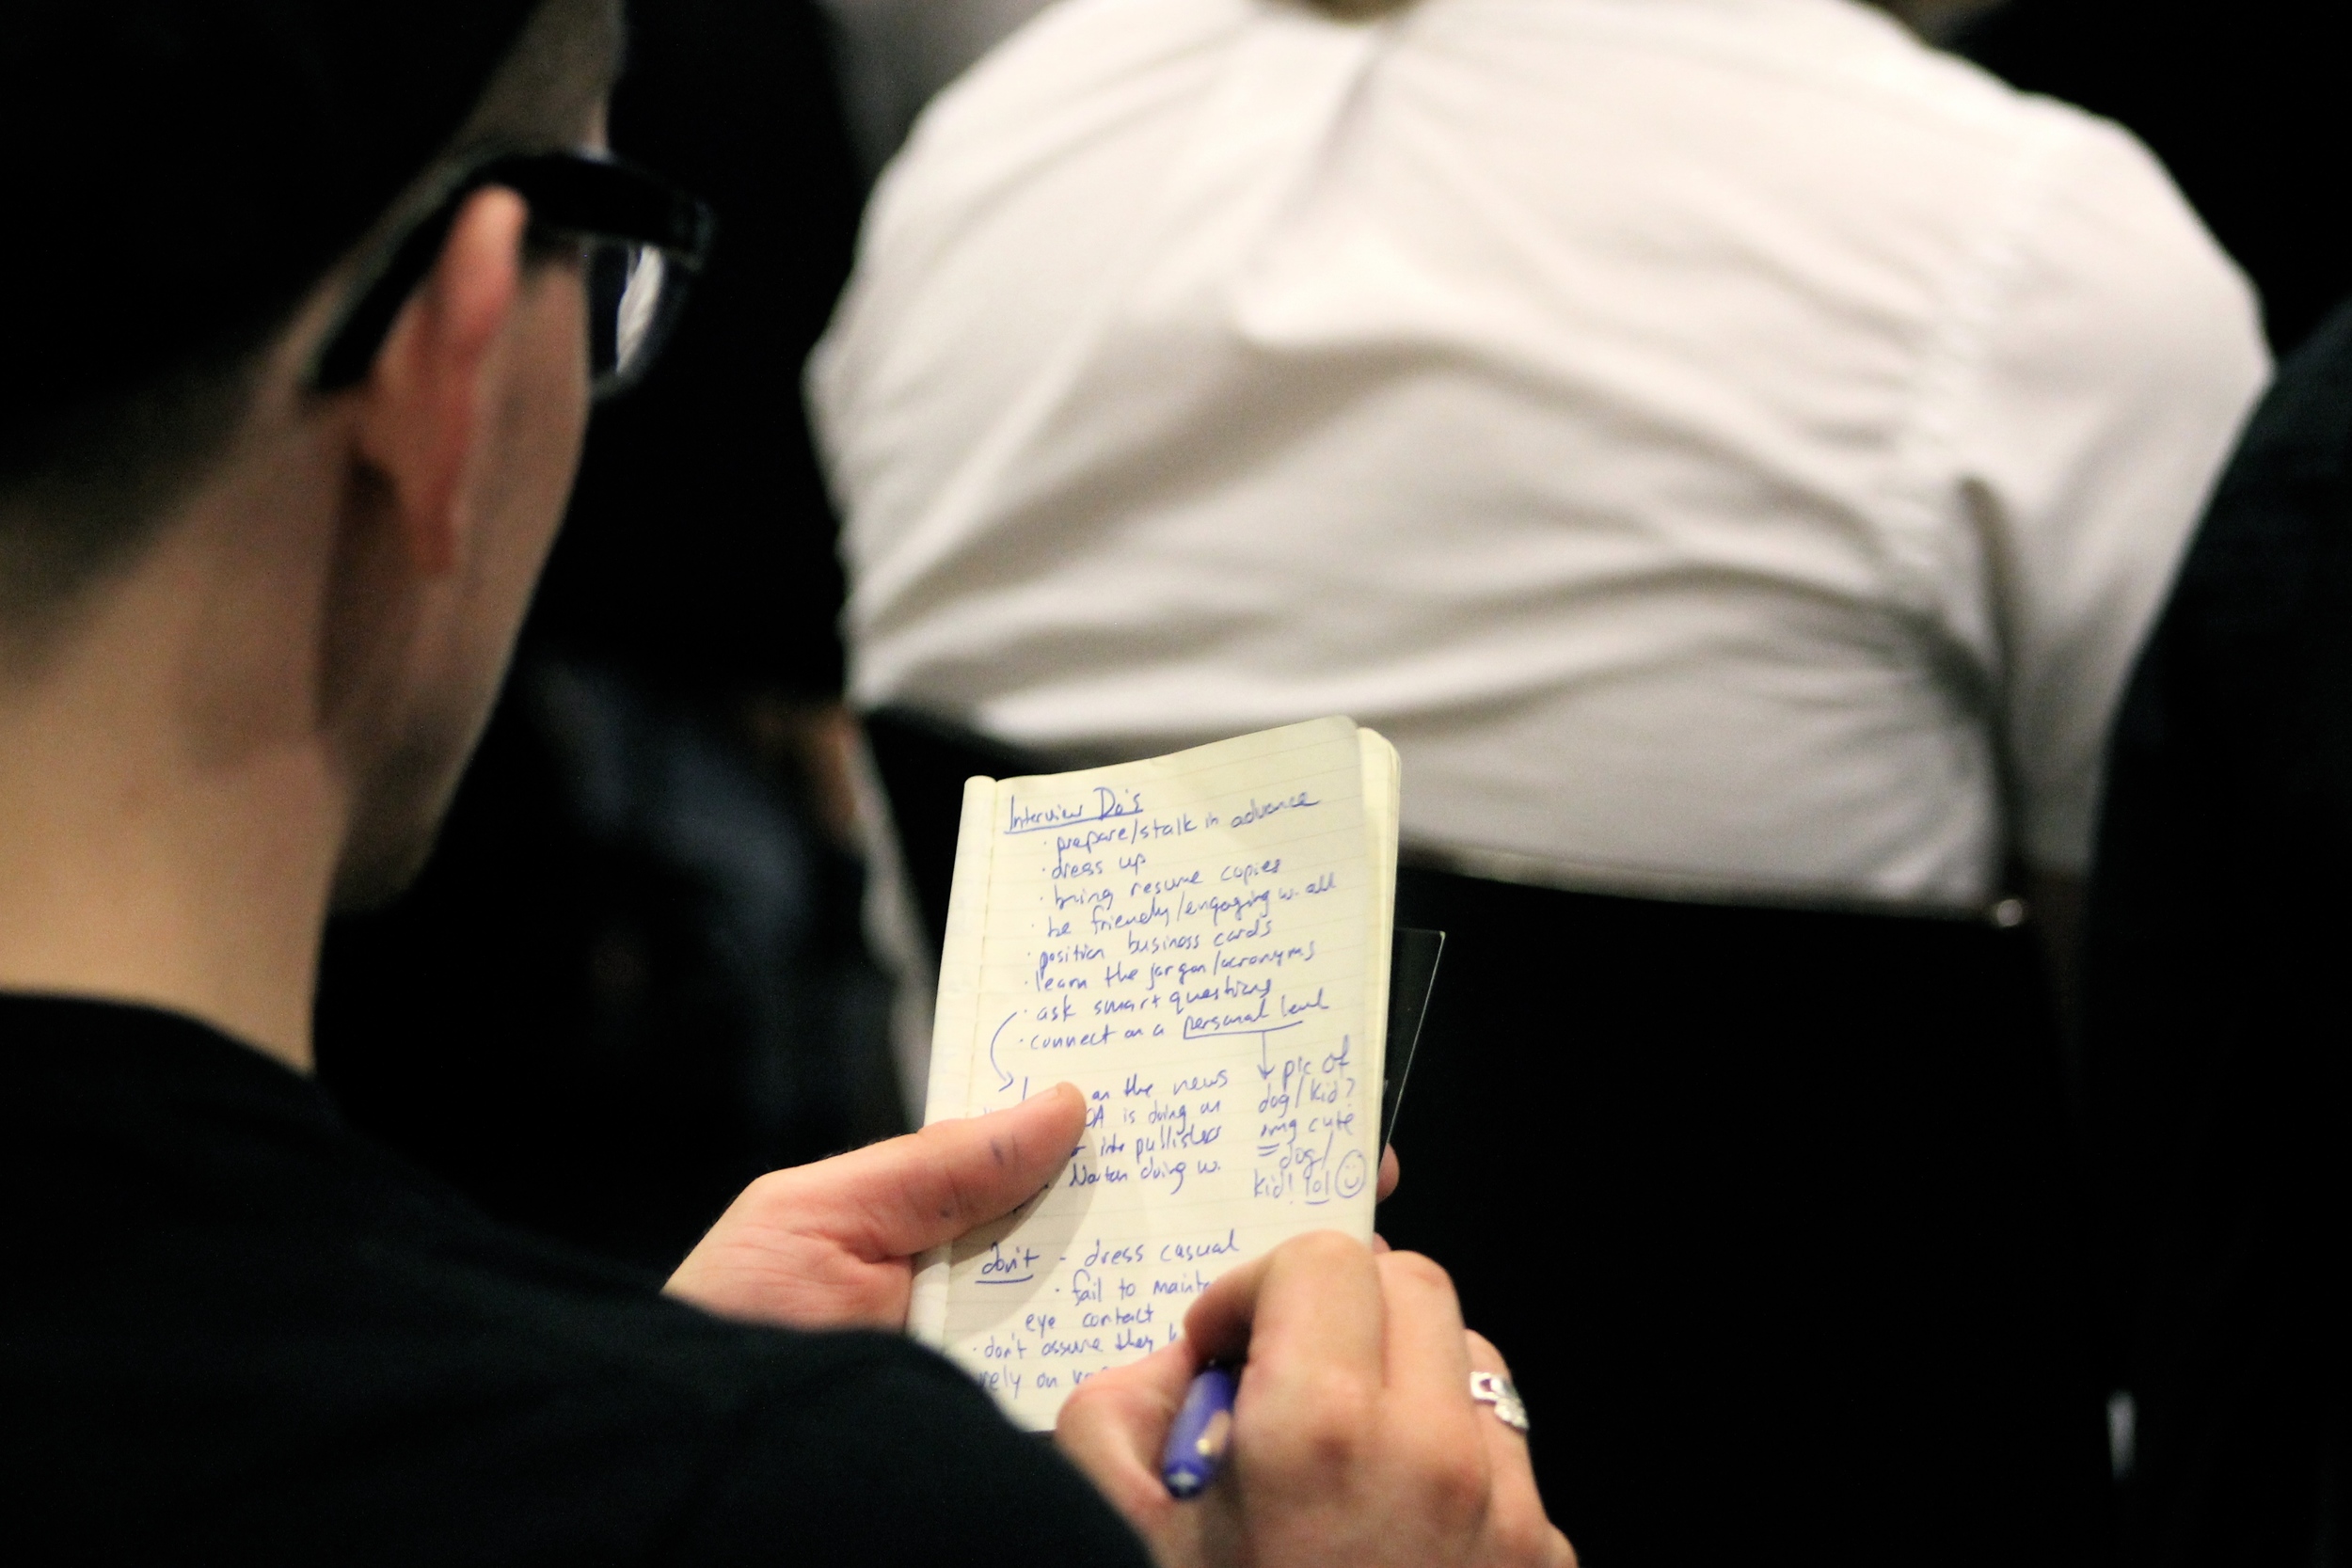 Interview Do's
· prepare/stalk in advance
· dress up
· bring resume copies
· be friendly/engaging w. all
· position business cards
· learn the jargon/acronyms
· ask smart questions
· connect on a personal level
on the news
is doing on
into publishers
Norton doing w.
pic of
dog/kid?
omg cute
dog/
kid! lol
don't - dress casual
· fail to
eye contact
· don't assume they
rely on